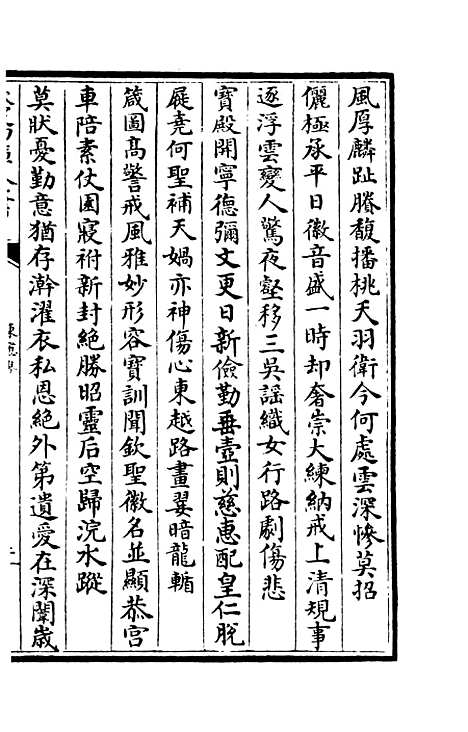 風厚麟趾賸馥播桃夭羽衛今何處雲深慘莫招
儷極承平日徽音盛一時却奢崇大練納戒上清規事
逐浮雲變人驚夜壑移三吳謡織女行路劇傷悲
寶殿開寧德彌文更日新儉勤垂壼則慈惠配皇仁脫
屣堯何聖補天媧亦神傷心東越路畫翣暗龍輴
箴圖高警戒風雅妙形容寶訓聞欽聖徽名並顯恭宫
車陪素仗園寢祔新封絶勝昭靈后空歸浣水蹤
莫狀憂勤意猶存澣濯衣私恩絶外第遺愛在深闈歲